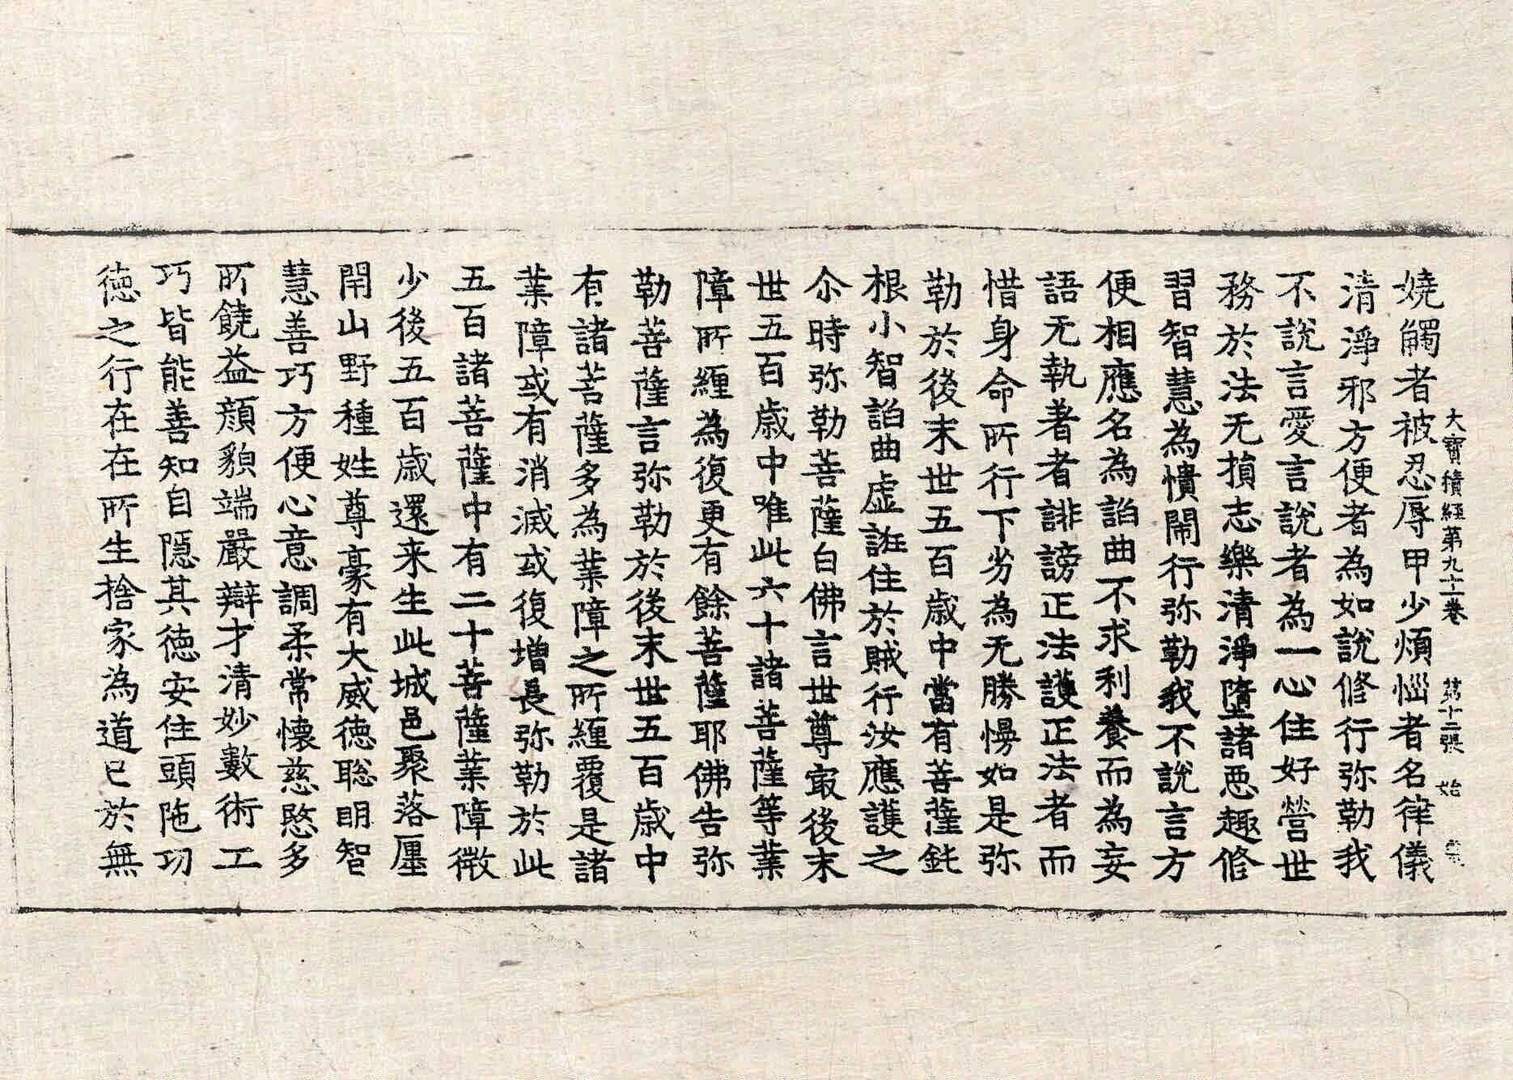 大寶積經第九十二卷　第十二張　始
嬈觸者被忍辱甲少煩惱者名律儀
清淨邪方便者為如說修行弥勒我
不說言愛言說者為一心住好營世
務於法无損志樂清淨墮諸惡趣修
習智慧為憒閙行弥勒我不說言方
便相應名為諂曲不求利養而為妄
語无執著者誹謗正法護正法者而
惜身命所行下劣為无勝慢如是弥
勒於後末世五百歲中當有菩薩鈍
根小智諂曲虛誑住於賊行汝應護之
尒時弥勒菩薩白佛言世尊㝡後末
世五百歲中唯此六十諸菩薩等業
障所纏為復更有餘菩薩耶佛告弥
勒菩薩言弥勒於後末世五百歲中
有諸菩薩多為業障之所纏覆是諸
業障或有消滅或復增長弥勒於此
五百諸菩薩中有二十菩薩業障微
少後五百歲還来生此城邑聚落㕓
閈山野種姓尊豪有大威德聡明智
慧善巧方便心意調柔常懷慈愍多
所饒益顏貌端嚴辯才清妙數術工
巧皆能善知自隱其德安住頭陁功
德之行在在所生捨家為道已於無